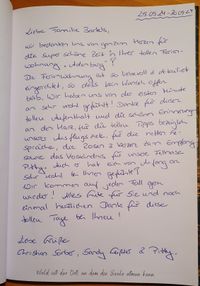 25.05.24 - 
Liebe Familie Bartels,
wir bedanken uns von ganzem Herzen für
die super schöne Zeit in Ihrer tollen Ferien-
wohnung
Die Ferienwohnung ist so liebevoll & detailliert
eingerichtet, so dass kein Wunsch offen
bleibt. Wir haben uns von der ersten Minute
an sehr wohl gefühlt! Danke für diesen
tollen Aufenthalt und die schönen Erinnerungen
an der Hand, für die tollen Tipps bezüglich
unsere Ausflugsziele, für die netten Ge-
spräche, die Rosen & Kerzen beim Empfang
sowie das Verständnis für unsere Fellnase
Pitty. Auch er hat sich von Anfang an
sehr wohl bei Ihnen gefühlt!
Wir kommen auf jeden Fall gern
wieder! Alles Gute für Sie und noch
einmal herzlichen Dank für diese
tollen Tage bei Ihnen!
Liebe Grüße
Christian Sandy & Pitty
Wohl ist der Ort an dem die Seele atmen kann